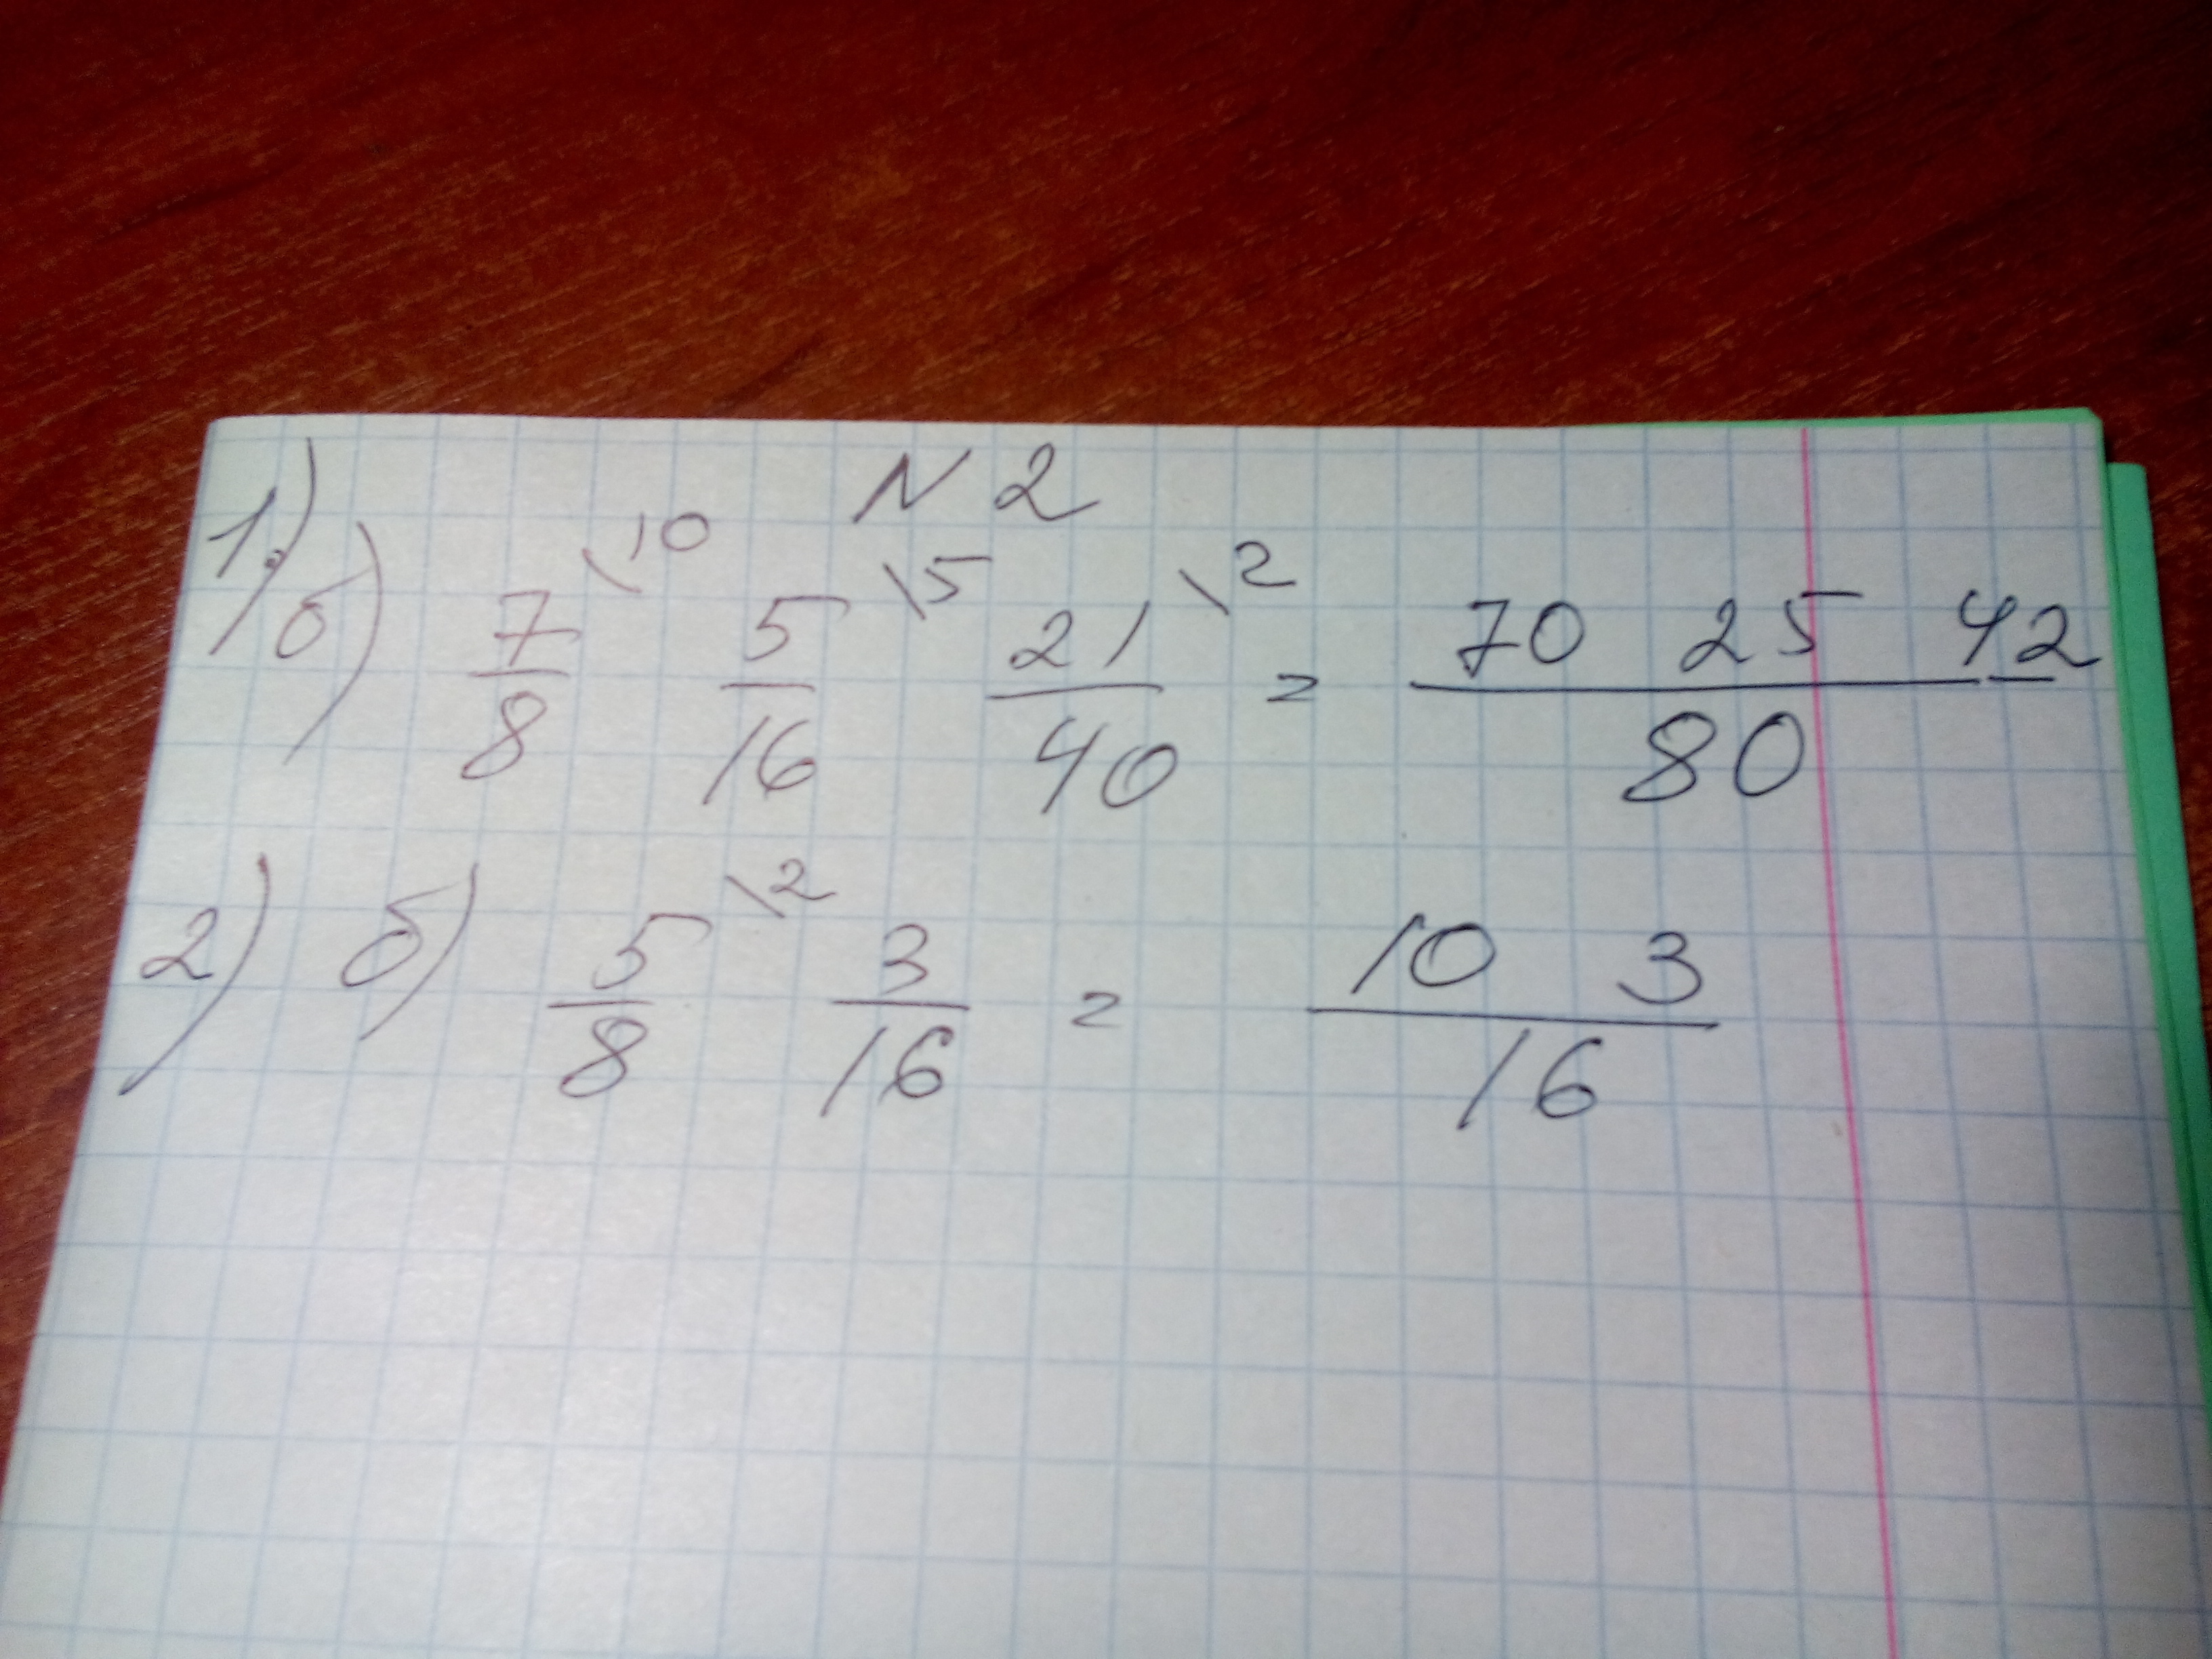 N 2
1.)
б) 7/8 \10 5/16 \5 21/40 \2 = 70 25 42/80
2) б) 5/8 \2 3/16 = 10 3/16